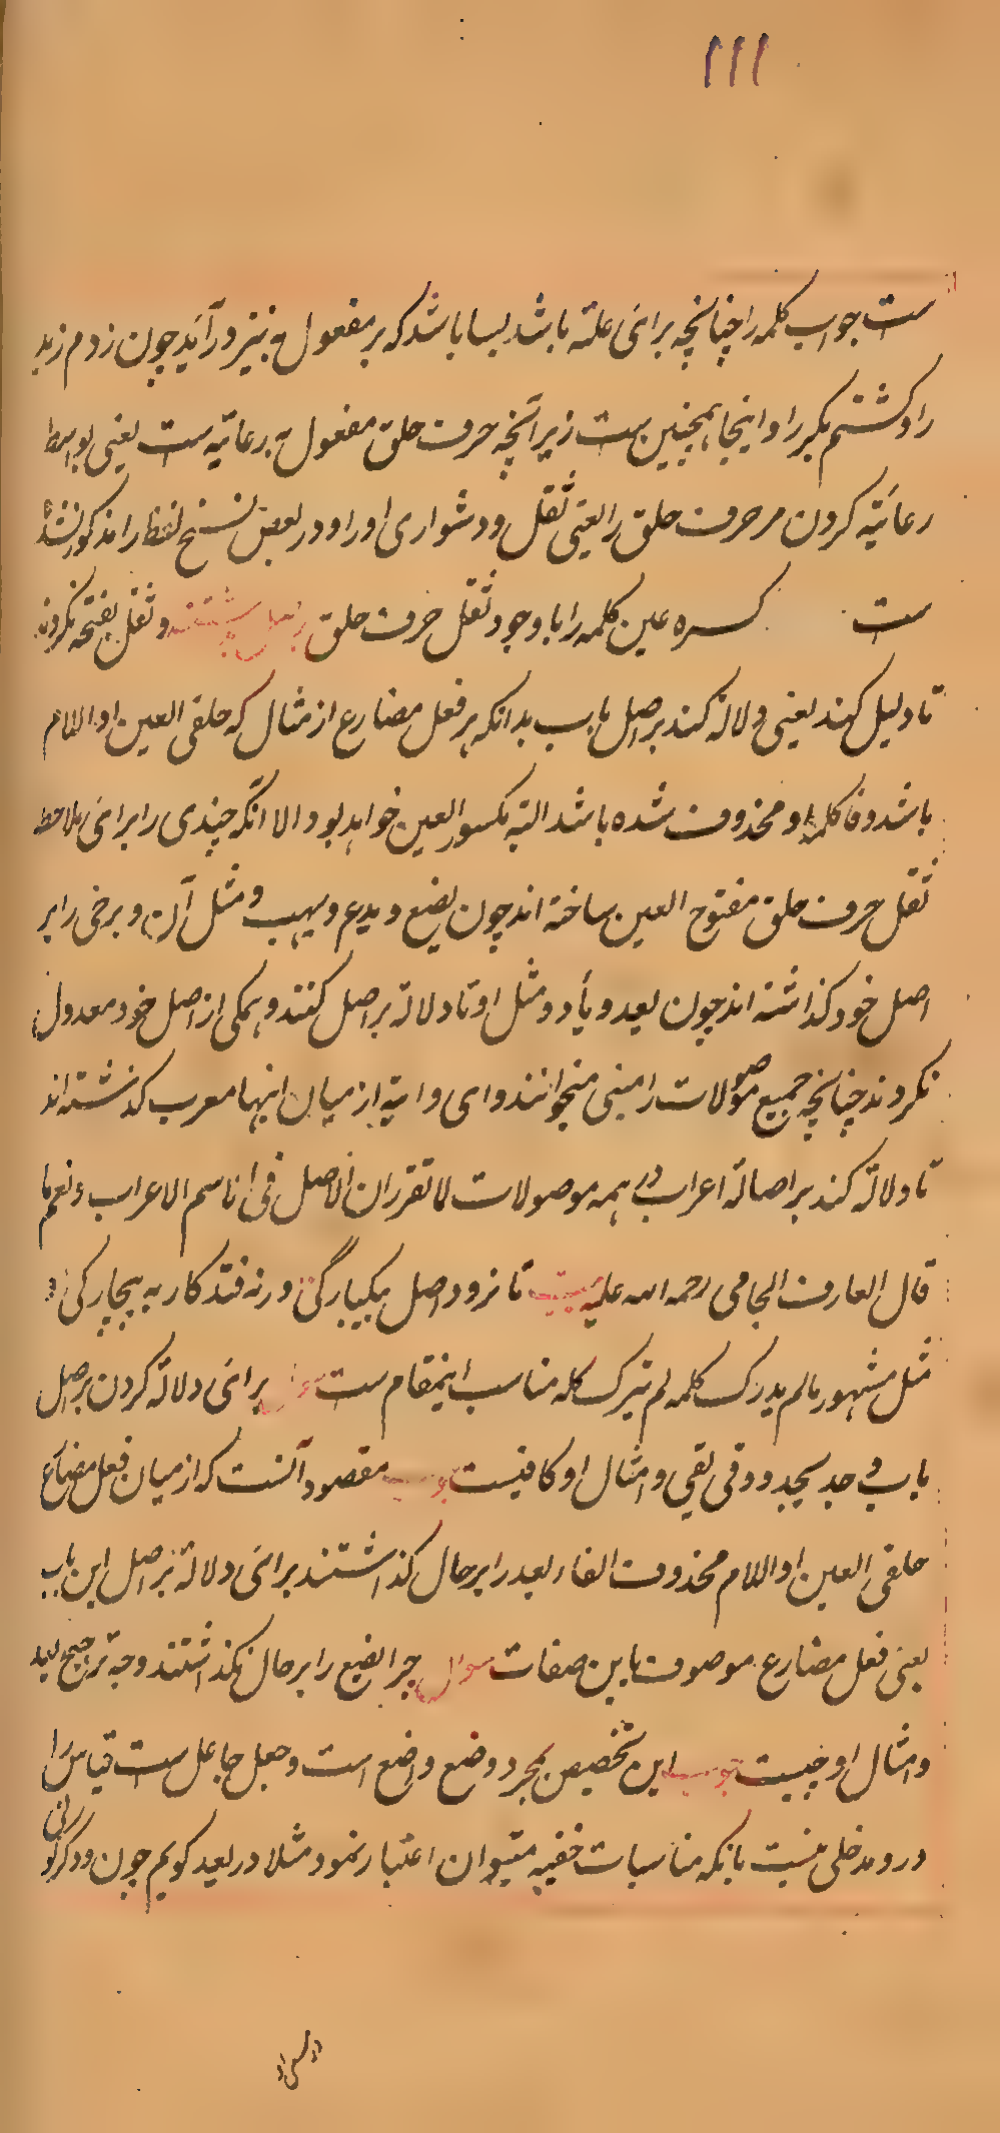 ١١١
ست جواب کلمه را چنانچه برای علة باشد بسا باشد که بر مفعول به نیز در آید چون زدم زید
را و کشتم بکر را و اینجا همچنین ست زیرا نچه حرف حلق مفعول به رعایة ست یعنی بواسطه
رعایة کردن مر حرف حلق را یعنی ثقل و دشواری او را و در بعض نسخ لفظ را مذکور نشده
ست کسره عین کلمه را با وجود ثقل حرف حلق و ثقل بفتحه نکردند
تا دلیل کهند یعنی دلالة کند بر اصل باب بدانکه هر فعل مضارع از مثال که حلقی العین او اللام
باشد و فا کلمه او محذوف شده باشد البته مکسور العین خواهد بود الا آنکه چندی را برای ملاحظه
ثقل حرف حلق مفتوح العین ساخته اند چون یضع و یدع و یهب و مثل آن و برخی را بر
اصل خود کذاشته اند چون یعد و یأد و مثل او تا دلالة بر اصل کنند و همکی از اصل خود معدول
نکردند چنانچه جمیع موصولات را مبنی میخوانند و ای و ایة از میان اینها معرب کذشته اند
تا دلالة کند بر اصالة اعراب در همه موصولات لا تقرر ان الاصل فی الاسم الاعراب و نعم ما
قال العارف الجامی رحمه الله علیه بیت تا نرود اصل بیکبارکی ورنه فتد کار به بیچارکی
مثل مشهور ما لم یدرک کله لم یترک کله مناسب اینمقام ست سوال برای دلالة کردن بر اصل
باب وجد یجد و وقی یقی و امثال او کافیست جواب مقصود آنست که از میان فعل مضارع
حلقی العین او اللام محذوف الفاء یعد را بر حال کذاشتند برای دلالة بر اصل این باب
یعنی فعل مضارع موصوف باین صفات سوال چرا یضع را بر حال نکذاشتند وجه ترجیح یعد
و امثال او چیست جواب این تخصیص بمجرد وضع واضع است و جعل جاعل ست قیاس را
درو مدخلی نیست بانکه مناسبات خفیه میتوان اعتبار نمود مثلا در یعد کویم چون